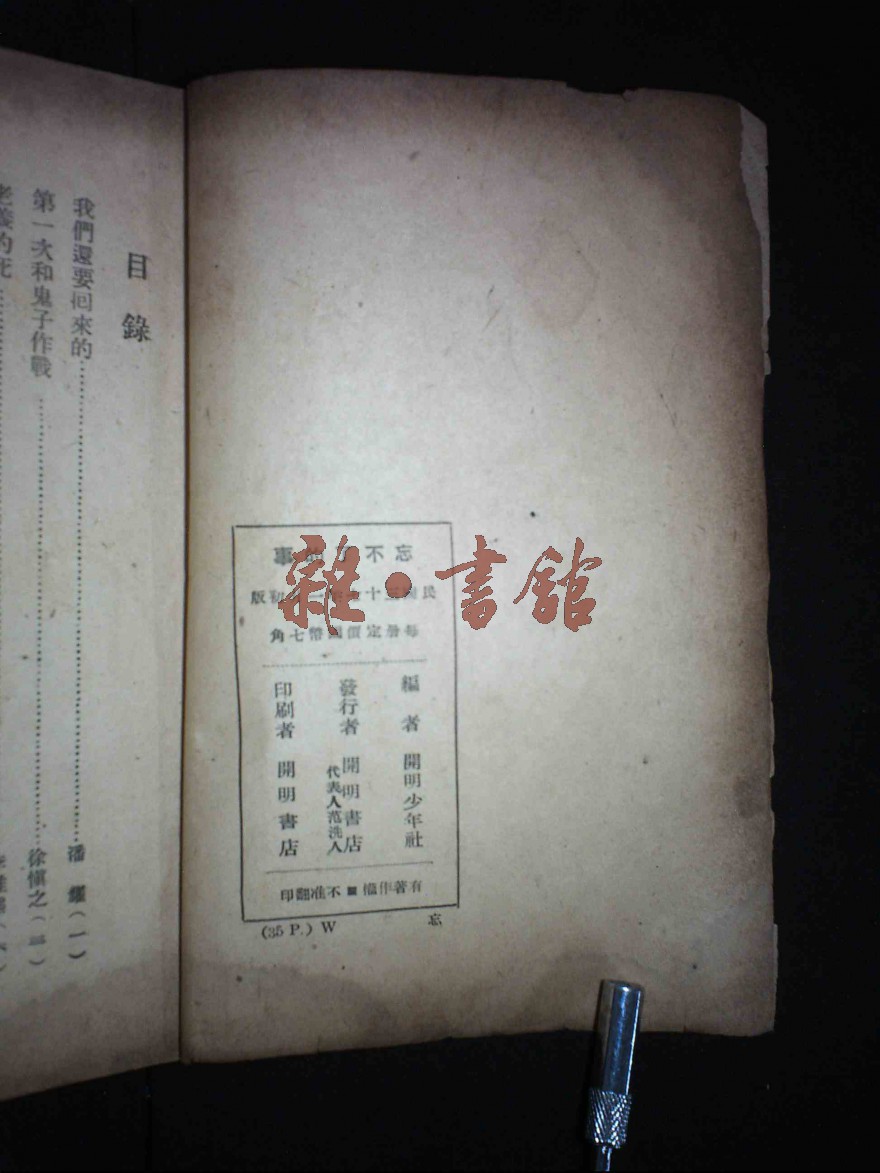 忘不了的事
民國三十
初版
每冊定價國幣七角
編者 開明少年社
發行者 開明書店
代表人范洗人
印刷者 開明書店
有著作權 不准翻印
(35 P.) W
忘
目錄
我們還要回來的……潘　（一）
第一次和鬼子作戰……徐愼之（三）
的死……
雜·書館